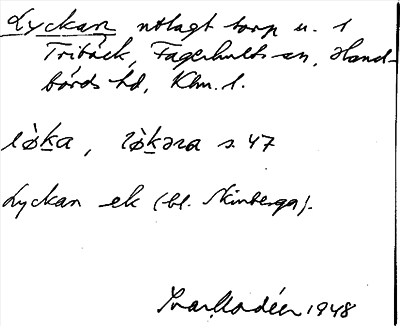 Lyckan utlagt torp u. 1
Tribäck, Fagerhults sn, Hand-
börds hd, Klm. l.
lø̀ḵa, lø̀ḵəra s. 47
Lyckan ek (bl. Skinberga).
Ivar Modéer 1948